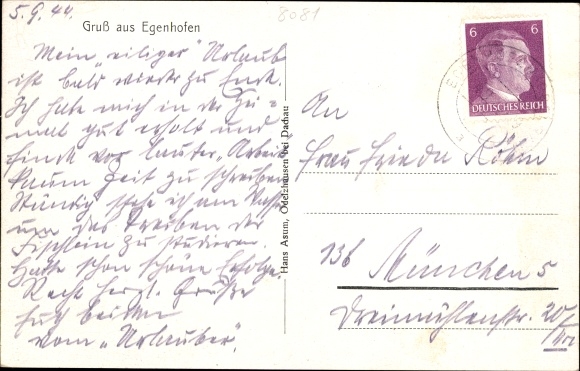 5.9.44.
8081
Gruß aus Egenhofen
Mein "eiliger" Urlaub
ist bald wieder zu Ende.
Ich habe mich in der Hei-
mat gut erholt und
finde vor lauter "Arbeit"
kaum Zeit zu schreiben
Ständig sitze ich am Wasser
um das Treiben der
Fischlein zu studieren.
Hatte schon schöne Erfolge.
Recht herzl. Grüße
Euch beiden
vom "Urlauber".
Hans Asum, Odelzhausen bei Dachau
6 6
DEUTSCHES REICH
An
Frau Frieda Röhm
13b München 5
Dreimühlenstr. 20/